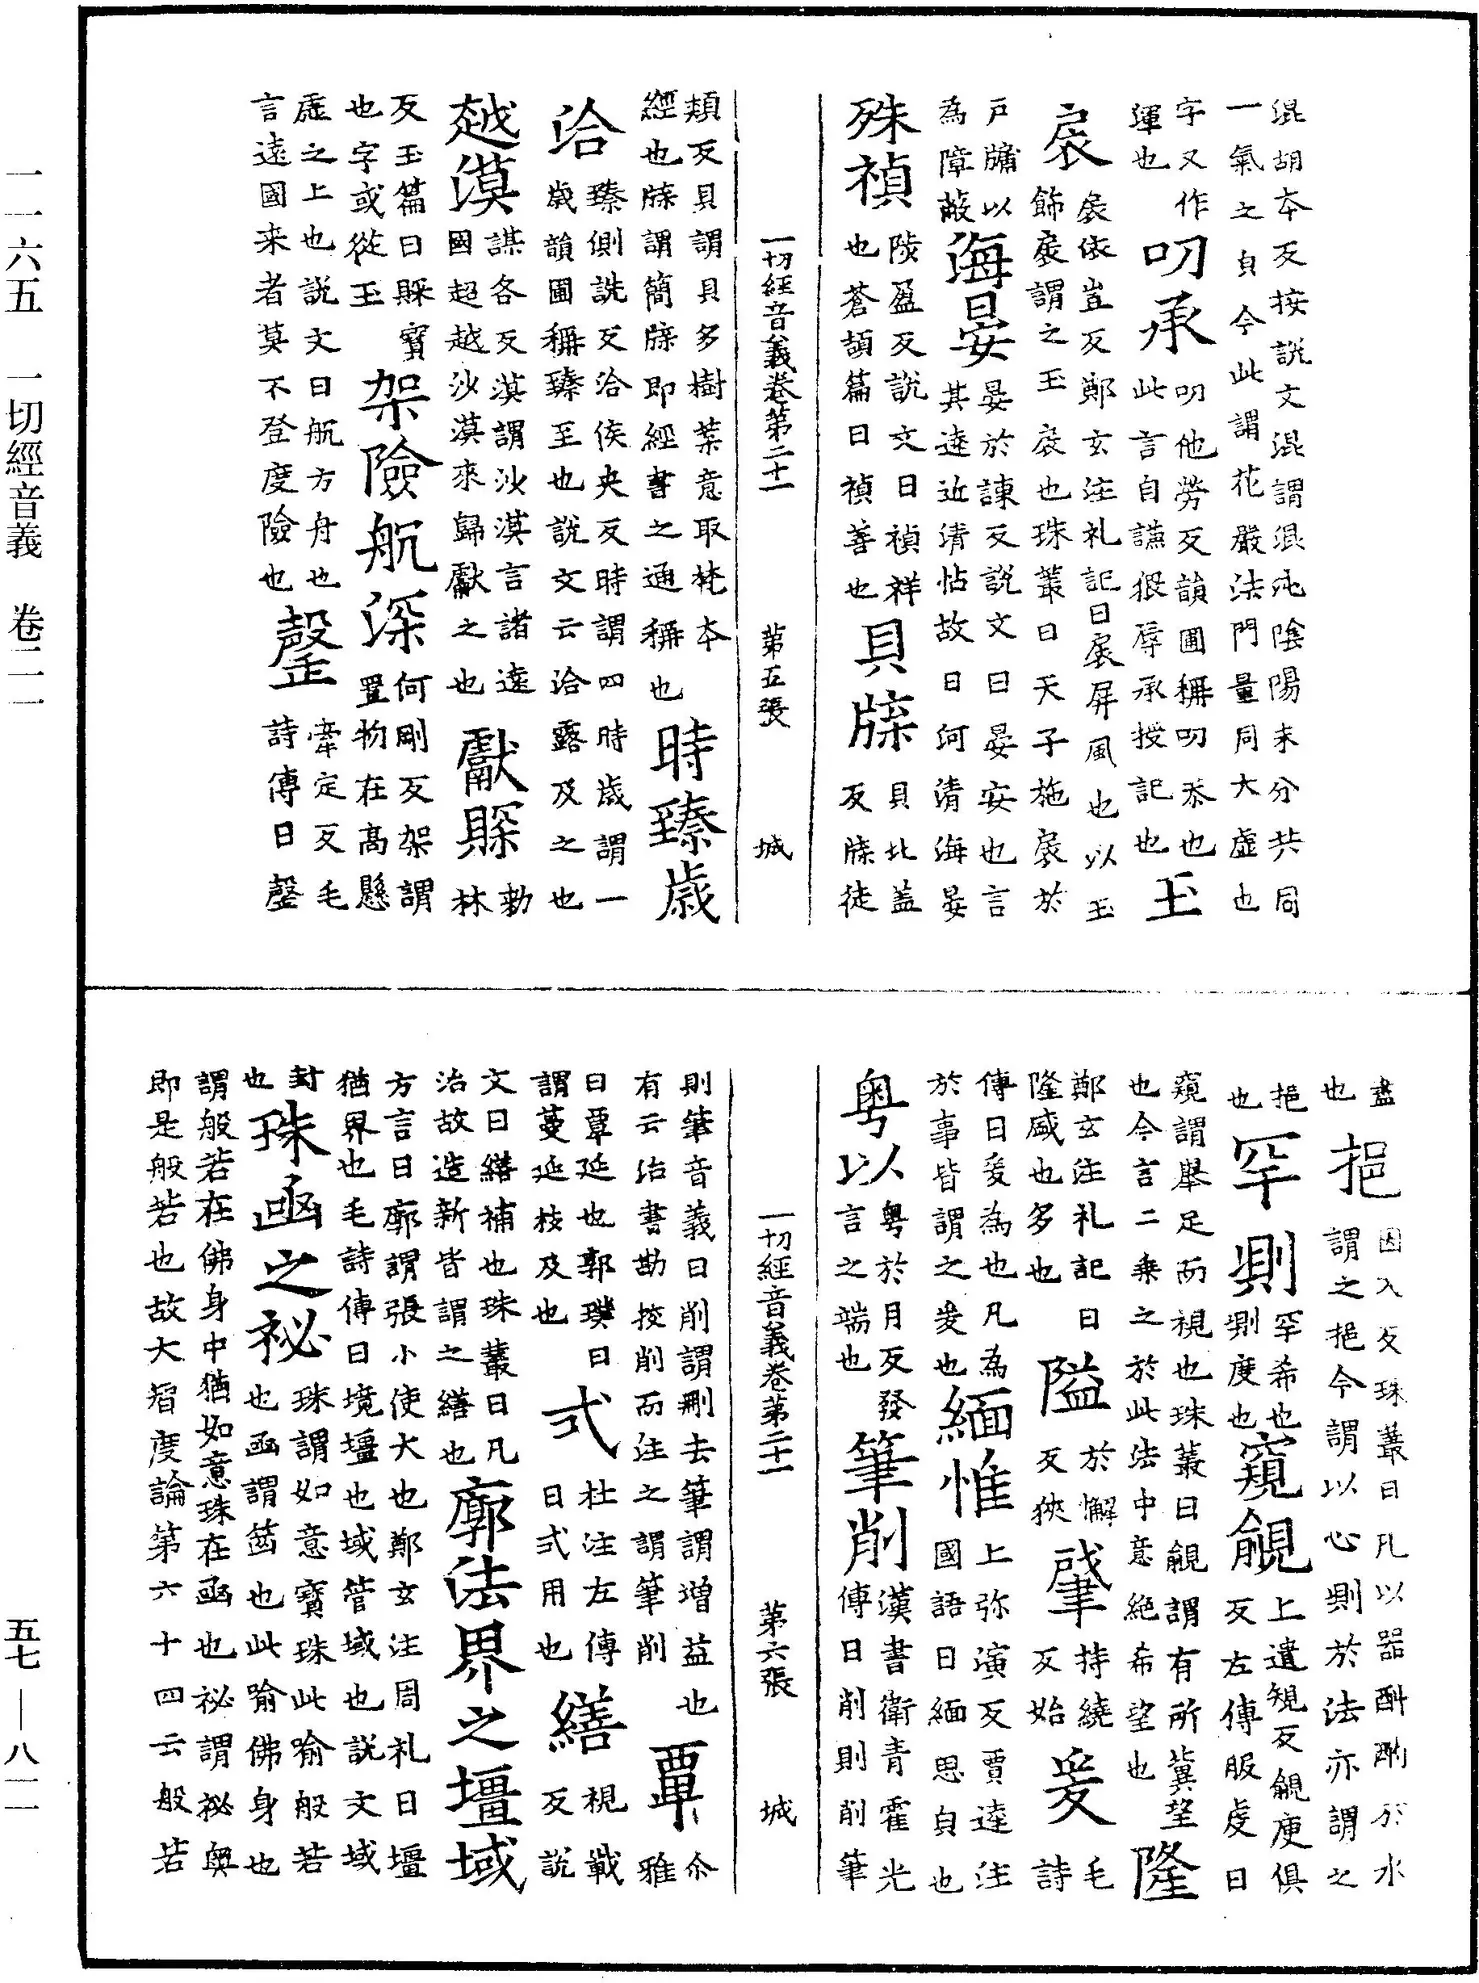 混胡本反按說文混謂混沌陰陽未分共同
一氣之皃今此謂花嚴法門量同大虛也
字又作運也叨承叨他勞反韻圃稱叨忝也此言自謙猥辱承授記也玉
扆扆依豈反鄭玄注礼記曰扆屏風也以玉飾扆謂之玉扆也珠叢曰天子施扆於
戶牖以為障蔽海晏晏於諫反說文曰晏安也言其逺近清怗故曰河清海晏
殊禎陟盈反說文曰禎祥也蒼頡篇曰禎善也貝牒貝北盖反牒徒
一切經音義卷第二十一 第五張 城
頰反貝謂貝多樹葉意取梵本經也牒謂簡牒即經書之通稱也時臻歲
洽臻側詵反洽侯夾反時謂四時歲謂一歲韻圃稱臻至也說文云洽霑及之也
越漠謀各反漠謂沙漠言諸逺國超越沙漠來歸獻之也獻賝勑林
反玉篇曰賝寳也字或從玉架險航深何剛反架謂置物在髙懸
虛之上也說文曰航方舟也言遠國来者莫不登度險也罄牽定反毛詩傳曰罄
盡也挹因入反珠叢曰凡以器酙酌於水謂之挹今謂以心測於法亦謂之
挹也罕測罕希也測度也窺覦上遣規反覦庾俱反左傳服虔曰
窺謂舉足而視也珠叢曰覦謂有所兾望也今言二乘之於此法中意絶希望也隆
鄭玄注礼記曰隆盛也多也隘於懈反狹肇持繞反始爰毛詩
傳曰爰為也凡為於事皆謂之爰也緬惟上弥演反賈逵注國語曰緬思皃也
粤以粤於月反發言之端也筆削漢書衛青霍光傳曰削則削筆
一切經音義卷第二十一 第六張 城
則筆音義曰削謂刪去筆謂增益也有云治書勘挍削而注之謂筆削覃尒雅
曰覃延也郭璞曰謂蔓延枝及也式杜注左傳曰式用也繕視戰反說
文曰繕補也珠叢曰凡治故造新皆謂之繕也廓法界之壇域
方言曰廓謂張小使大也鄭玄注周礼曰壇猶界也毛詩傳曰境壇也域管域也說文域
封也珠函之祕珠謂如意寳珠此喻般若也函謂箇也此喻佛身也
謂般若在佛身中猶如意珠在函也祕謂祕奥即是般若也故大智度論第六十四云般若
一一六五 一切經音義 卷二一 五七—八一一